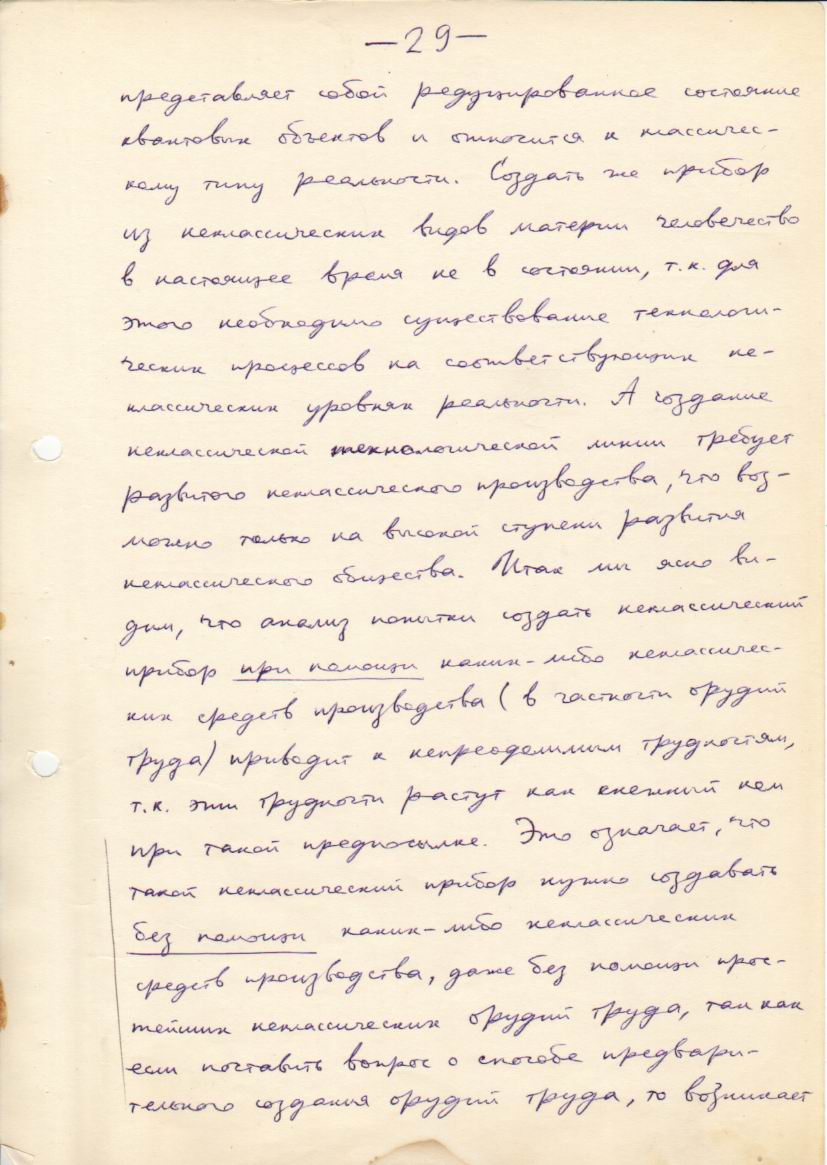 — 29 —
представляет собой редуцированное состояние
квантовых объектов и относится к классичес-
кому типу реальности. Создать же прибор
из неклассических видов материи человечество
в настоящее время не в состоянии, т.к. для
этого необходимо существование технологи-
ческих процессов на соответствующих не-
классических уровнях реальности. А создание
неклассической технологической линии требует
развитого неклассического производства, что воз-
можно только на высокой ступени развития
неклассического общества. Итак мы ясно ви-
дим, что анализ попытки создать неклассический
прибор при помощи каких-либо неклассичес-
ких средств производства (в частности орудий
труда) приводит к непреодолимым трудностям,
т.к. эти трудности растут как снежный ком
при такой предпосылке. Это означает, что
такой неклассический прибор нужно создавать
без помощи каких-либо неклассических
средств производства, даже без помощи прос-
тейших неклассических орудий труда, так как
если поставить вопрос о способе предвари-
тельного создания орудий труда, то возникает